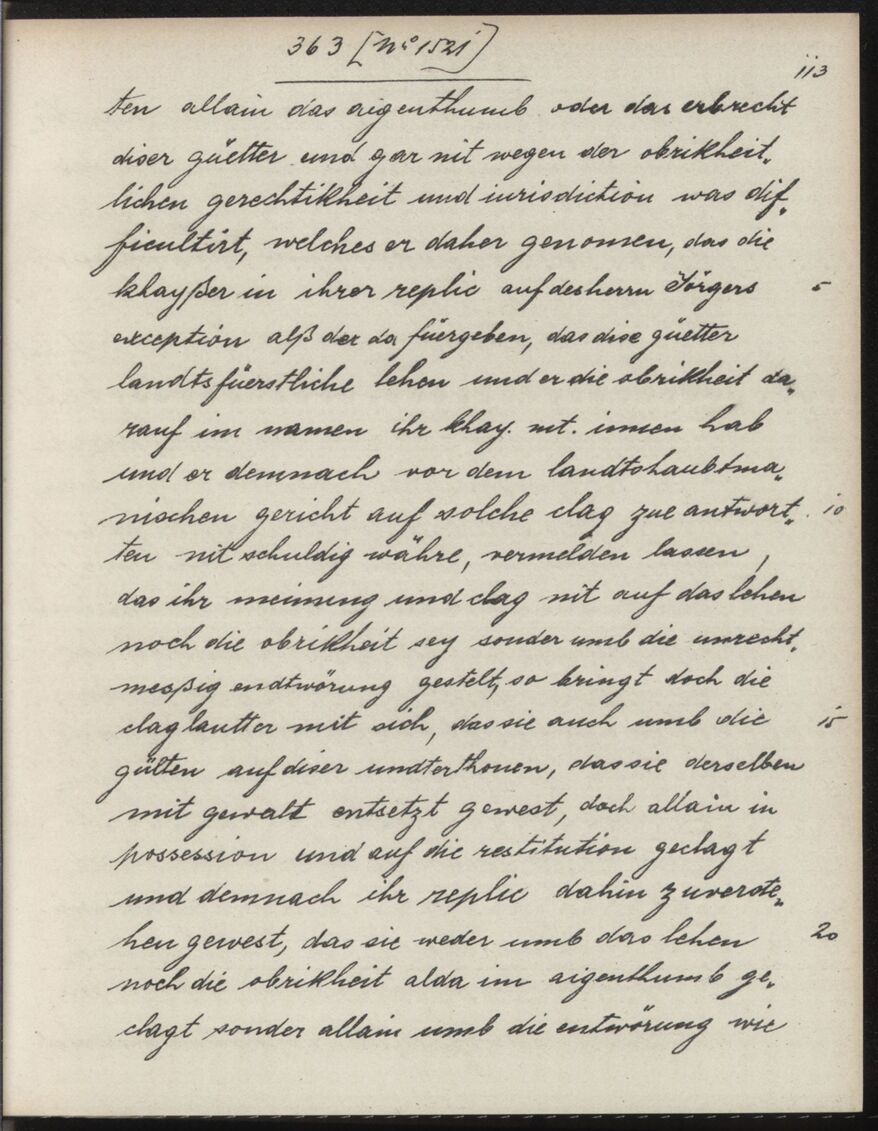 363 [No 1521]
113
ten allain das aigenthumb oder das erbrecht
diser güetter und gar nit wegen der obrikheit„
lichen gerechtikheit und iurisdiction was dif„
ficultirt, welches er daher genomen, das die
khayßer in ihrer replic auf des herrn Jörgers 5
exception alß der da füergeben, das dise güetter
landtsfüerstliche lehen und er die obrikheit da„
rauf im namen ihr khay. mt. innen hab
und er demnach vor dem landtshaubtma„
nischen gericht auf solche clag zue antwort„ 10
ten nit schuldig währe, vermelden lassen,
das ihr meinung und clag nit auf das lehen
noch die obrikheit sey sonder umb die unrecht„
meßig endtwörung gestelt, so bringt doch die
clag lautter mit sich, das sie auch umb die 15
gülten auf diser undterthonen, das sie derselben
mit gewalt entsetzt gewest, doch allain in
possession und auf die restitution geclagt
und demnach ihr replic dahin zuverste„
hen gewest, das sie weder umb das lehen 20
noch die obrikheit alda im aigenthumb ge„
clagt sonder allain umb die entwörung wie